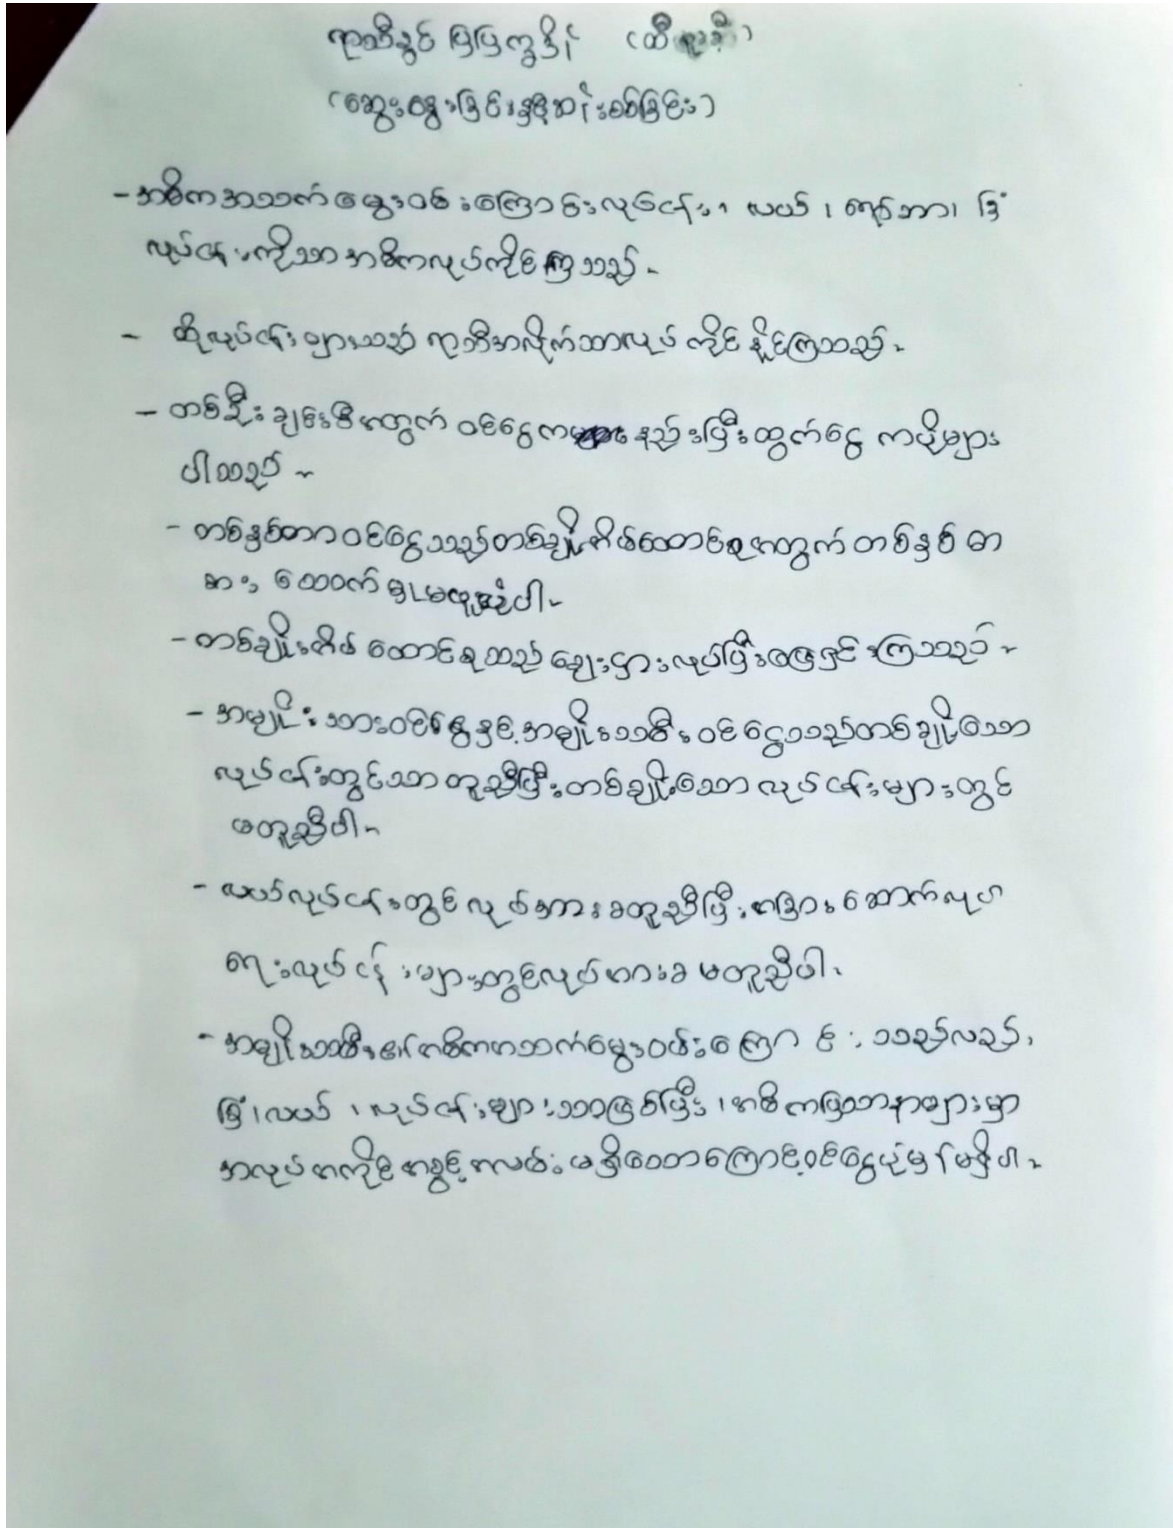 ရာသီခွင် ပြပြက္ခဒိန် (ထီ
(ဆွေးနွေးခြင်းနှင့်ဆန်းစစ်ခြင်း)
- အဓိကအသက်မွေးဝမ်းကြောင်းလုပ်ငန်း၊ လယ်၊ တစ်ဘာ၊ ခြံ
လုပ်ငန်းကိုသာအဓိကလုပ်ကိုင်ကြသည်။
- ထိုလုပ်ငန်းများသည် ရာသီအလိုက်သာလုပ်ကိုင်နိုင်ကြသည်။
- တစ်ဦးချင်းစီအတွက် ဝင်ငွေက နည်းပြီးထွက်ငွေ ကပိုများ
ပါသည်။
- တစ်နှစ်တာဝင်ငွေသည်တစ်ချို့အိမ်ထောင်စုအတွက်တစ်နှစ်တာ
စား ထောက်မှုမလုံပါ။
- တစ်ချို့အိမ်ထောင်စုသည်ချေးငှားလုပ်ပြီးဖြေရှင်းကြသည်။
- အမျိုးသားဝင်ငွေနှင့်အမျိုးသမီးဝင်ငွေသည်တစ်ချို့သော
လုပ်ငန်းတွင်သာတူညီပြီးတစ်ချို့သောလုပ်ငန်းများတွင်
မတူညီပါ။
- လယ်လုပ်ငန်းတွင်လုပ်အားခတူညီပြီးအခြားဆောက်လုပ်
ရေးလုပ်ငန်းများတွင်လုပ်အားခမတူညီပါ။
- အမျိုးသမီး၏အဓိကအသက်မွေးဝမ်းကြောင်းသည်လည်း
ခြံ၊လယ်၊လုပ်ငန်းများသာဖြစ်ပြီး၊အဓိကပြဿနာများမှာ
အလုပ်အကိုင်အခွင့်အလမ်းမရှိသောကြောင့်ဝင်ငွေပုံမှန်မရှိပါ။